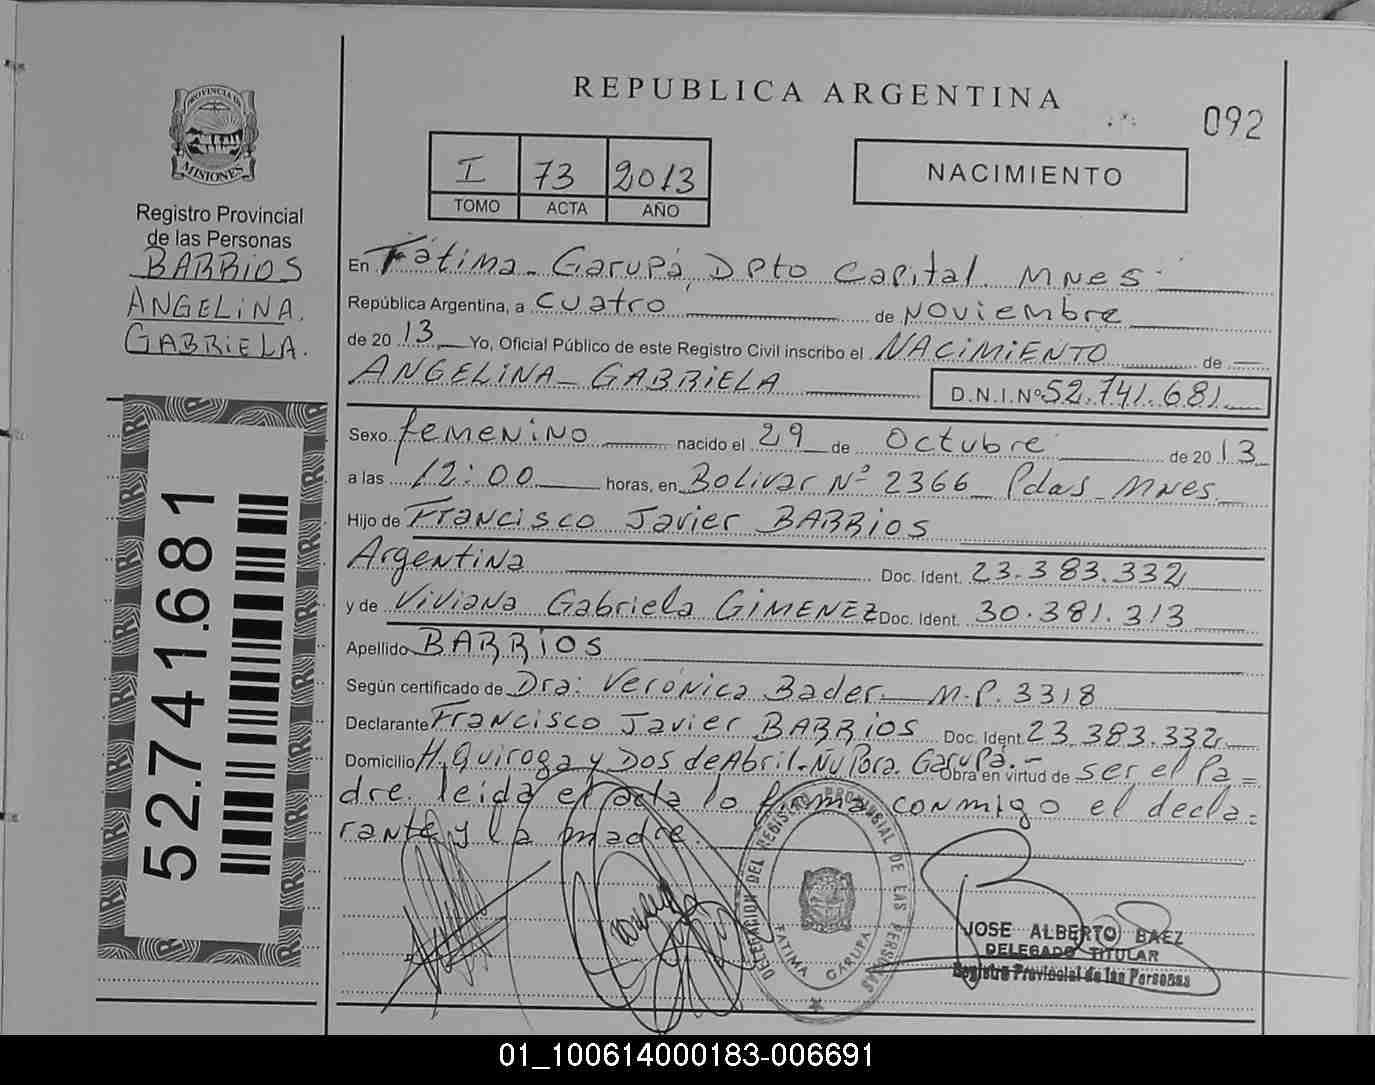 REPUBLICA ARGENTINA
092
PROVINCIA DE
MISIONES
Registro Provincial
de las Personas
BARRIOS
ANGELINA.
GABRIELA.
52.741.681
I 73 2013
TOMO ACTA AÑO
NACIMIENTO
En Fátima - Garupá, Dpto Capital. MNES
República Argentina, a cuatro de Noviembre
de 2013 Yo, Oficial Público de este Registro Civil inscribo el NACIMIENTO de
ANGELINA - GABRIELA D.N.I.Nº 52.741.681
Sexo femenino nacido el 29 de Octubre de 2013
a las 12:00 horas, en Bolivar Nº 2366 Pdas - MNES
Hijo de Francisco Javier BARRIOS
Argentina Doc. Ident. 23.383.332
y de Viviana Gabriela GIMENEZ Doc. Ident. 30.381.313
Apellido BARRIOS
Según certificado de Dra: Verónica Bader. M.P. 3318
Declarante Francisco Javier BARRIOS Doc. Ident. 23.383.332
Domicilio H. Quiroga y Dos de Abril - Ñu Pora. Garupá. - Obra en virtud de ser el Pa=
dre, leida el acta lo firma conmigo el decla=
rante y la madre.
DELEGACION DEL REGISTRO PROVINCIAL DE LAS PERSONAS
FATIMA GARUPA
JOSE ALBERTO BAEZ
DELEGADO TITULAR
Registro Provincial de las Personas
01_100614000183-006691